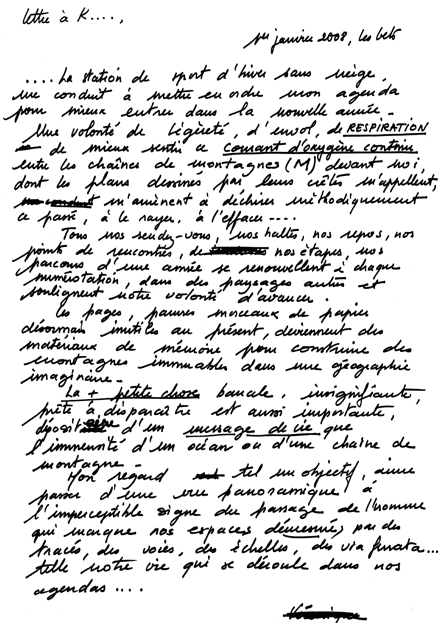 lettre à K....,
1er janvier 2008, Les Gets
....La station de sport d'hiver sans neige,
me conduit à mettre en ordre mon agenda
pour mieux entrer dans la nouvelle année -
Une volonté de légèreté, d'envol, de RESPIRATION
- de mieux sentir ce courant d'oxygène continu
entre les chaînes de montagnes (M) devant moi,
dont les plans dessinés par leurs crêtes m'appellent,
m'amènent à déchirer méthodiquement
ce passé, à le rayer, à l'effacer ----.
Tous nos rendez-vous, nos haltes, nos repos, nos
points de rencontres, de nos étapes, nos
parcours d'une année se renouvellent à chaque
numérotation, dans des paysages autres et
soulignent notre volonté d'avancer.
Les pages, pauvres morceaux de papier
désormais inutiles au présent, deviennent des
matériaux de mémoire pour construire des
montagnes immuables dans une géographie
imaginaire -
La + petite chose banale, insignifiante,
prête à disparaître est aussi importante,
dépositaire d'un message de vie que
l'immensité d'un océan ou d'une chaîne de
montagne -
Mon regard tel un objectif, aime
passer d'une vue panoramique à
l'imperceptible signe du passage de l'homme
qui marque nos espaces démesurés, par des
tracés, des voies, des échelles, des via ferrata...
telle notre vie qui se déroule dans nos
agendas ....
Véronique